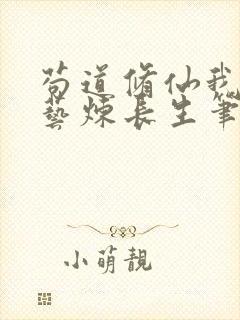 苟道脩仙我
藝煉長生筆
小萌靚